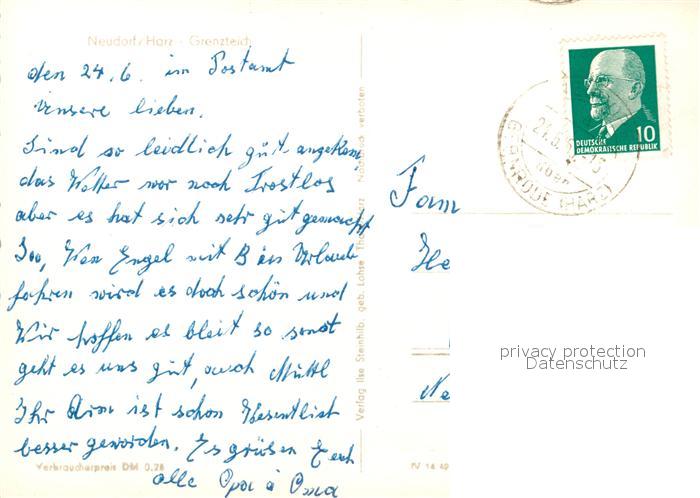 Neudorf/Harz - Grenzteich
den 24.6. im Postamt
Unsere lieben.
Sind so leidlich gut angekom,
das Wetter war noch Trostlos
aber es hat sich sehr gut gemacht
Joo, Wen Engel mit B in Urlaub
fahren wird es doch schön und
Wir hoffen es bleit so sonst
geht es uns gut, auch Muttl
Ihr Arm ist schon Wesentlist
besser geworden. Es grüßen Euch
alle Opa & Oma
Verbraucherpreis DM 0,25
Verlag Ilse Steinhilb. geb. Lohse
verboten
IV 14 49
Fam
He
Ne
DEUTSCHE
DEMOKRATISCHE REPUBLIK
10
GERNRODE (HARZ)
privacy protection
Datenschutz